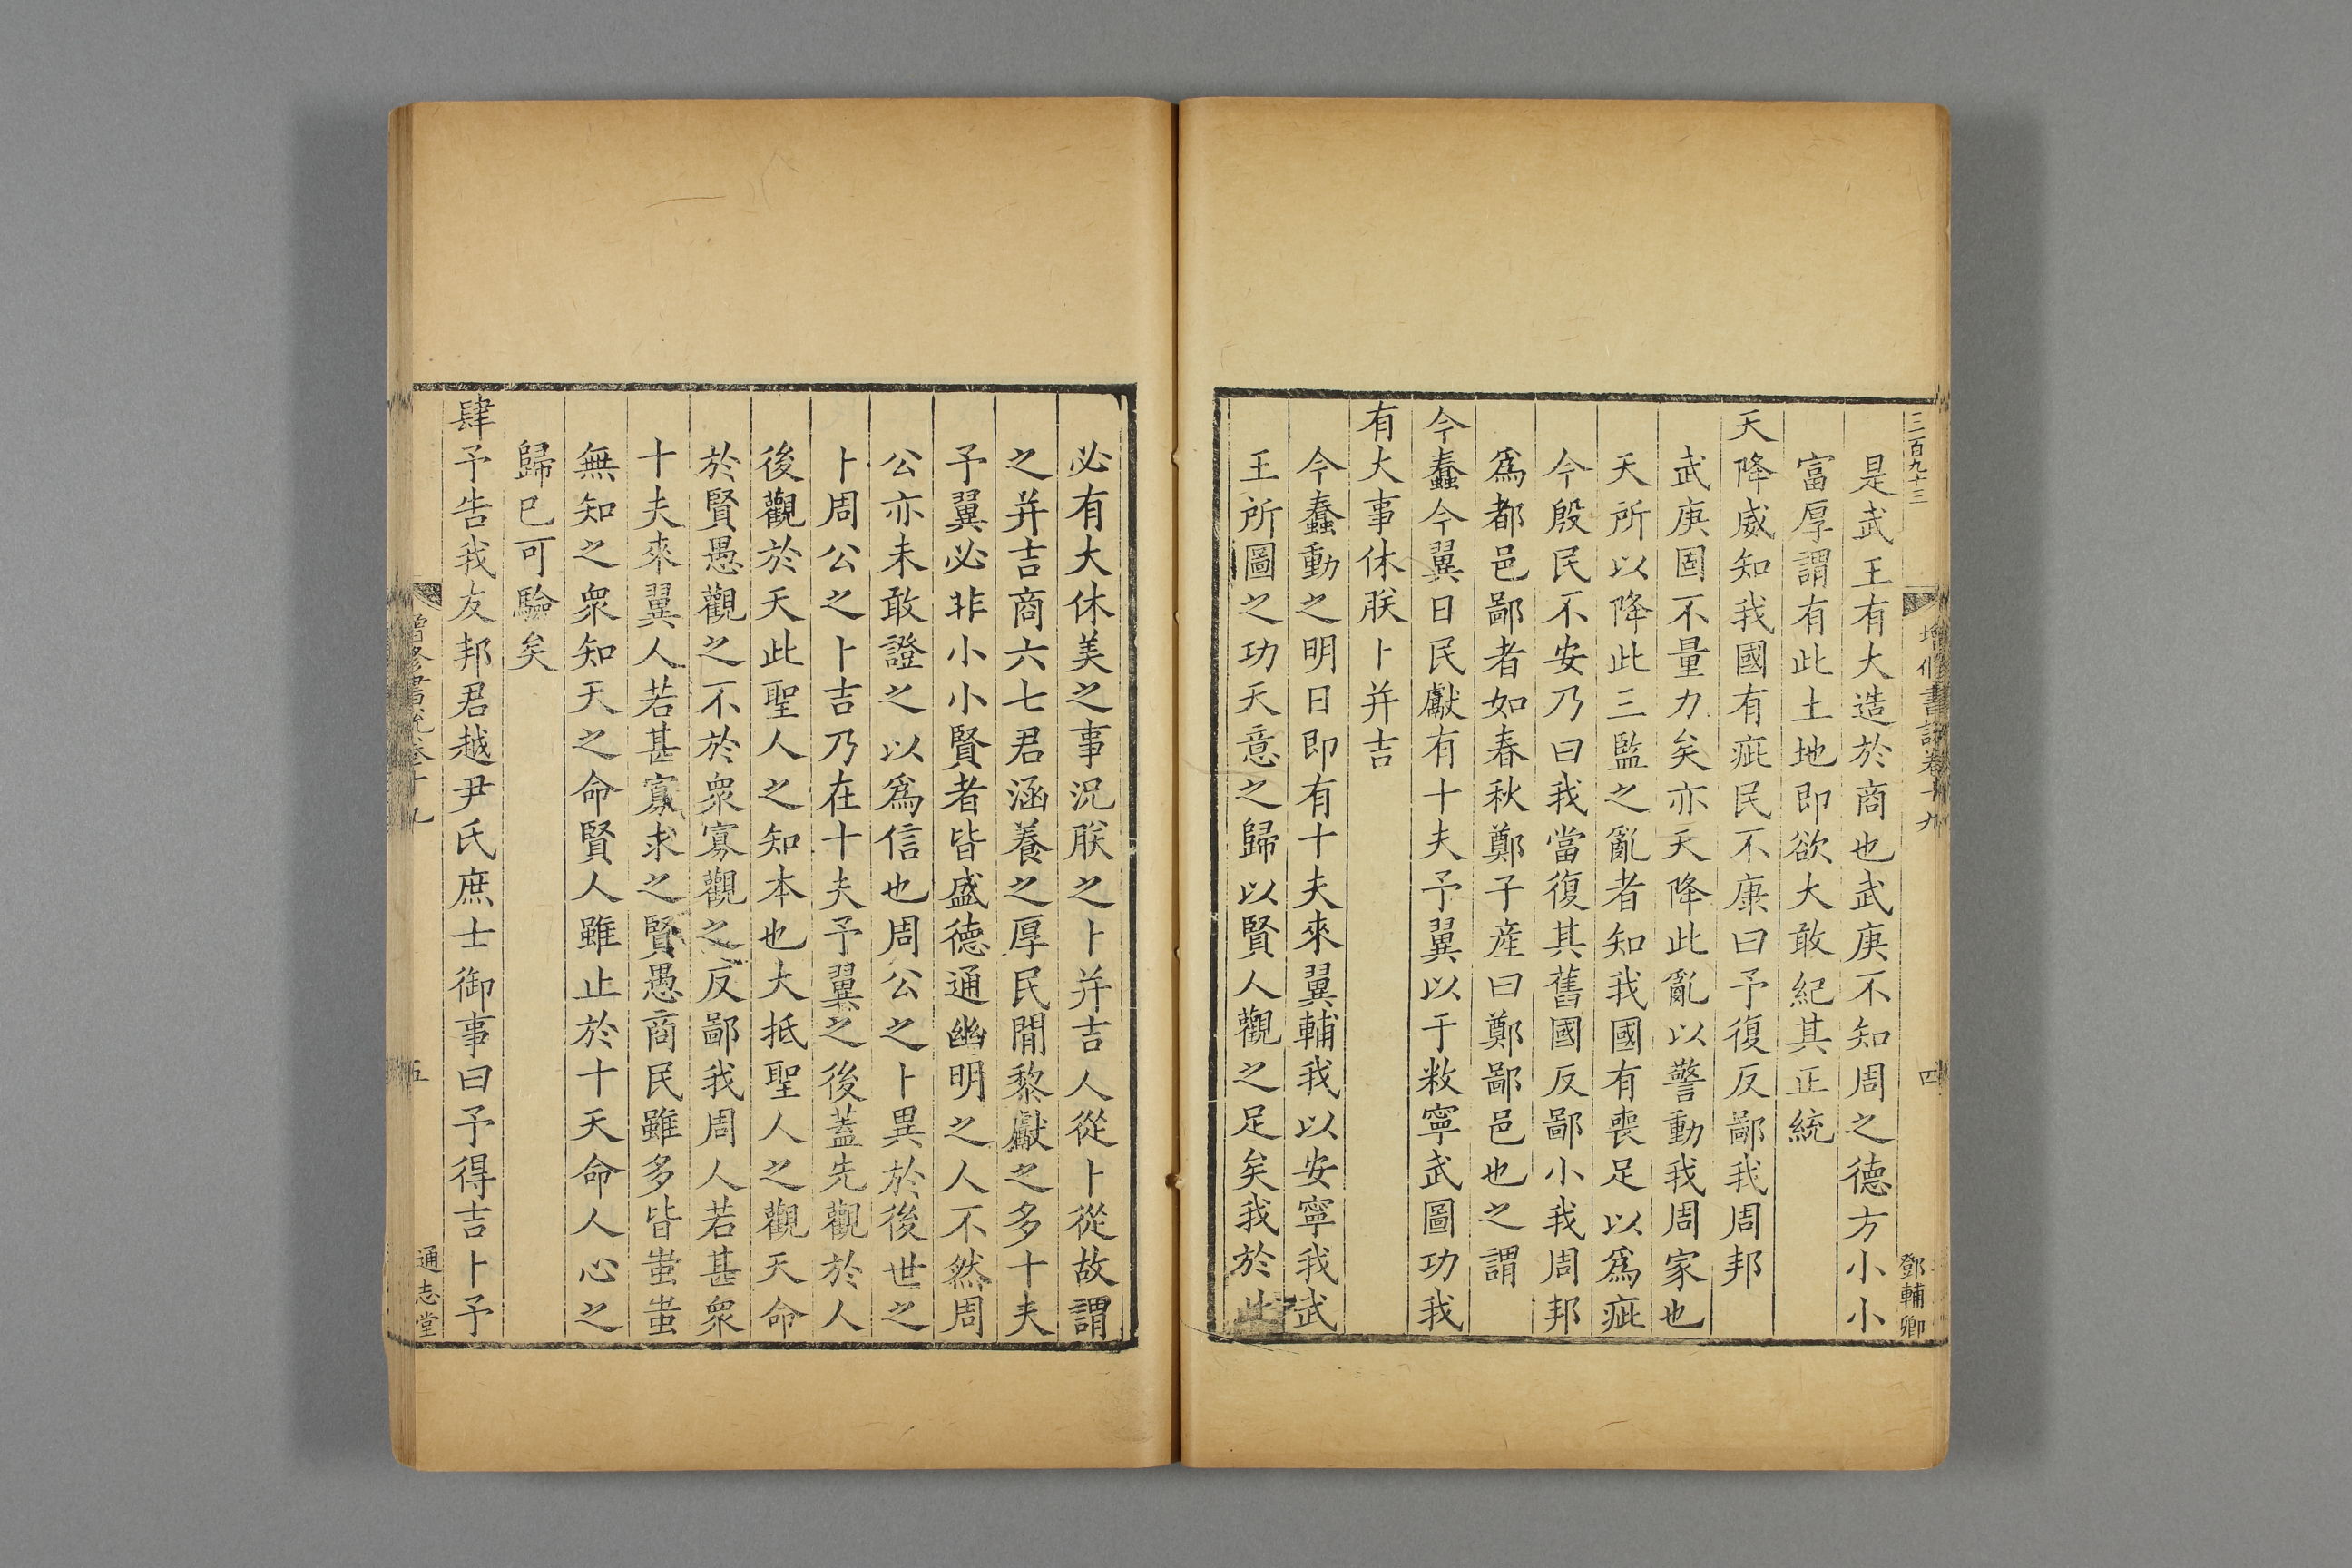 三百九十三
增修書說卷十九
四
鄧輔卿
是武王有大造於商也武庚不知周之德方小小
富厚謂有此土地即欲大敢紀其正統
天降威知我國有疵民不康曰予復反鄙我周邦
武庚固不量力矣亦天降此亂以警動我周家也
天所以降此三監之亂者知我國有喪足以爲疵
今殷民不安乃曰我當復其舊國反鄙小我周邦
爲都邑鄙者如春秋鄭子産曰鄭鄙邑也之謂
今蠢今翼日民獻有十夫予翼以于敉寧武圖功我
有大事休朕卜并吉
今蠢動之明日即有十夫來翼輔我以安寧我武
王所圖之功天意之歸以賢人觀之足矣我於此
必有大休美之事況朕之卜并吉人從卜從故謂
之并吉商六七君涵養之厚民間黎獻之多十夫
予翼必非小小賢者皆盛德通幽明之人不然周
公亦未敢證之以爲信也周公之卜異於後世之
卜周公之卜吉乃在十夫予翼之後蓋先觀於人
後觀於天此聖人之知本也大抵聖人之觀天命
於賢愚觀之不於衆寡觀之反鄙我周人若甚衆
十夫來翼人若甚寡求之賢愚商民雖多皆蚩蚩
無知之衆知天之命賢人雖止於十天命人心之
歸已可驗矣
肆予告我友邦君越尹氏庶士御事曰予得吉卜予
增修書說卷十九
五
通志堂